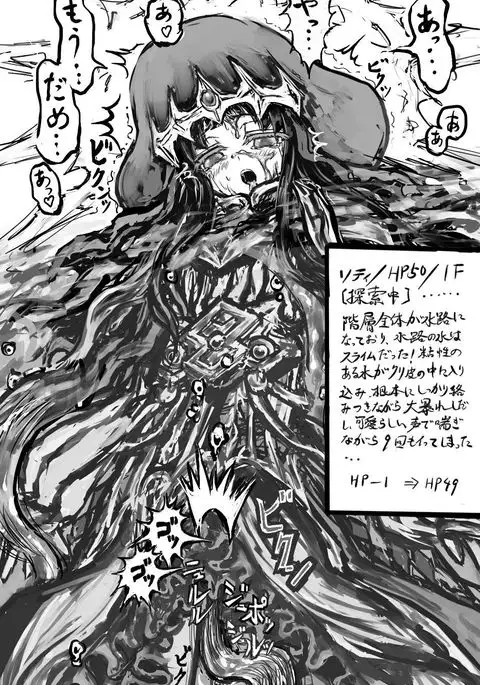 あっ…
やっ…
もう…
だめ…
あ♡
あっ♡
ああ
ビクンッ
ビクッ
ソティ/HP50/1F
[探索中]……
階層全体が水路に
なっており、水路の水は
スライムだった！粘性の
ある水がクリ皮の中に入り
込み、根本にしっかり絡
みつきながら大暴れしだ
し、可愛らしい声で喘ぎ
ながら9回もイってしまった
…
HP-1 ⇒HP49
ゴッ
ゴッ
ゴッ
ビクン
ニュルル
ビクッ